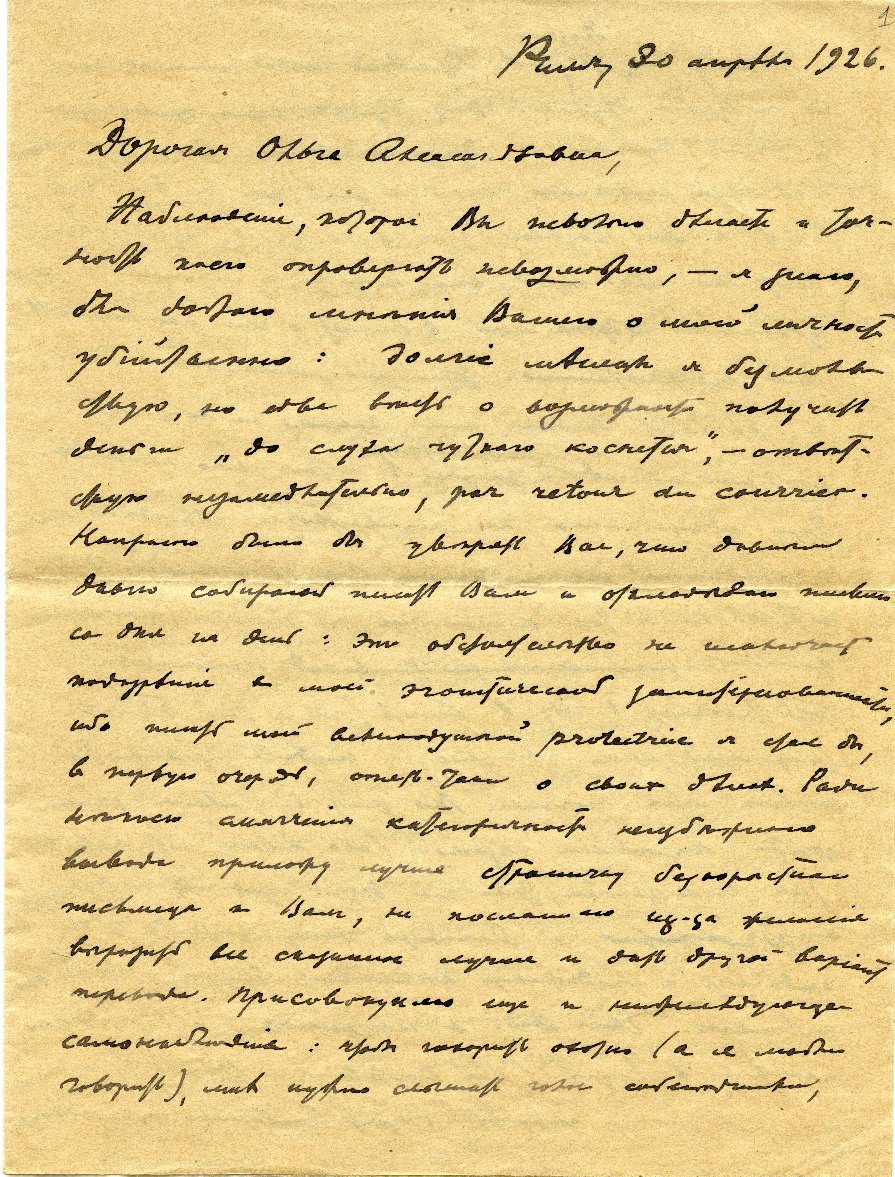 1
Римъ, 30 апрѣля 1926.
Дорогая Ольга Александровна,
Наблюденіе, которое Вы невольно дѣлаете и точ-
ность коего опровергать невозможно, — я знаю,
для добраго мнѣнія Вашего о моей личности
убійственно: Долгіе мѣсяцы я безмолв-
ствую, но едва вѣсть о возможности получить
деньги „до слуха чуткаго коснется", — отвѣт-
ствую незамедлительно, par retour du courrier.
Напрасно было бы увѣрять Васъ, что давнымъ
давно собираюсь писать Вамъ и откладываю письмо
со дня на день: это обстоятельство не исключаетъ
подозрѣнія въ моей эгоистической заинтересованности,
ибо писать моей великодушной protectrice я сталъ бы,
въ первую очередь, опять-таки о своихъ дѣлахъ. Ради
нѣкоего смягченія категоричности неизбѣжнаго
вывода приложу лучше страничку безкорыстнаго
письмеца къ Вамъ, не посланнаго из-за желанія
выразить все сказанное лучше и дать другой варіантъ
перевода. Присовокупляю еще и нижеслѣдующее
самонаблюденіе: чтобы говорить охотно (а я люблю
говорить), мнѣ нужно слышать голосъ собесѣдника,